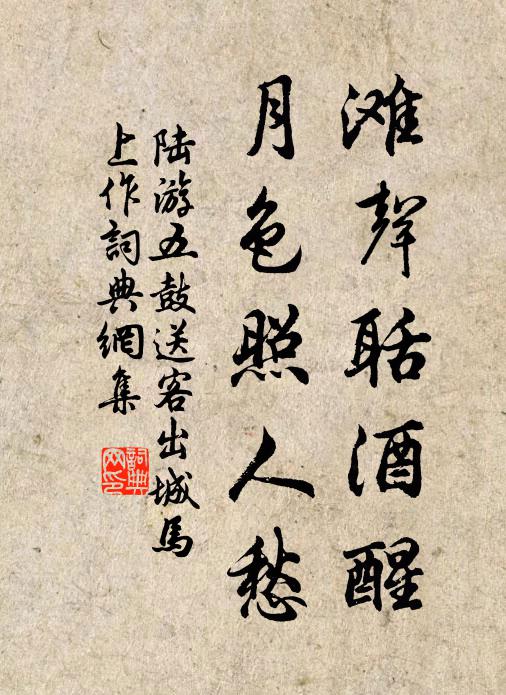 滩聲聒酒醒
月色照人愁
陆游五鼓送客出城馬
上作詞典網集
詞典
网印